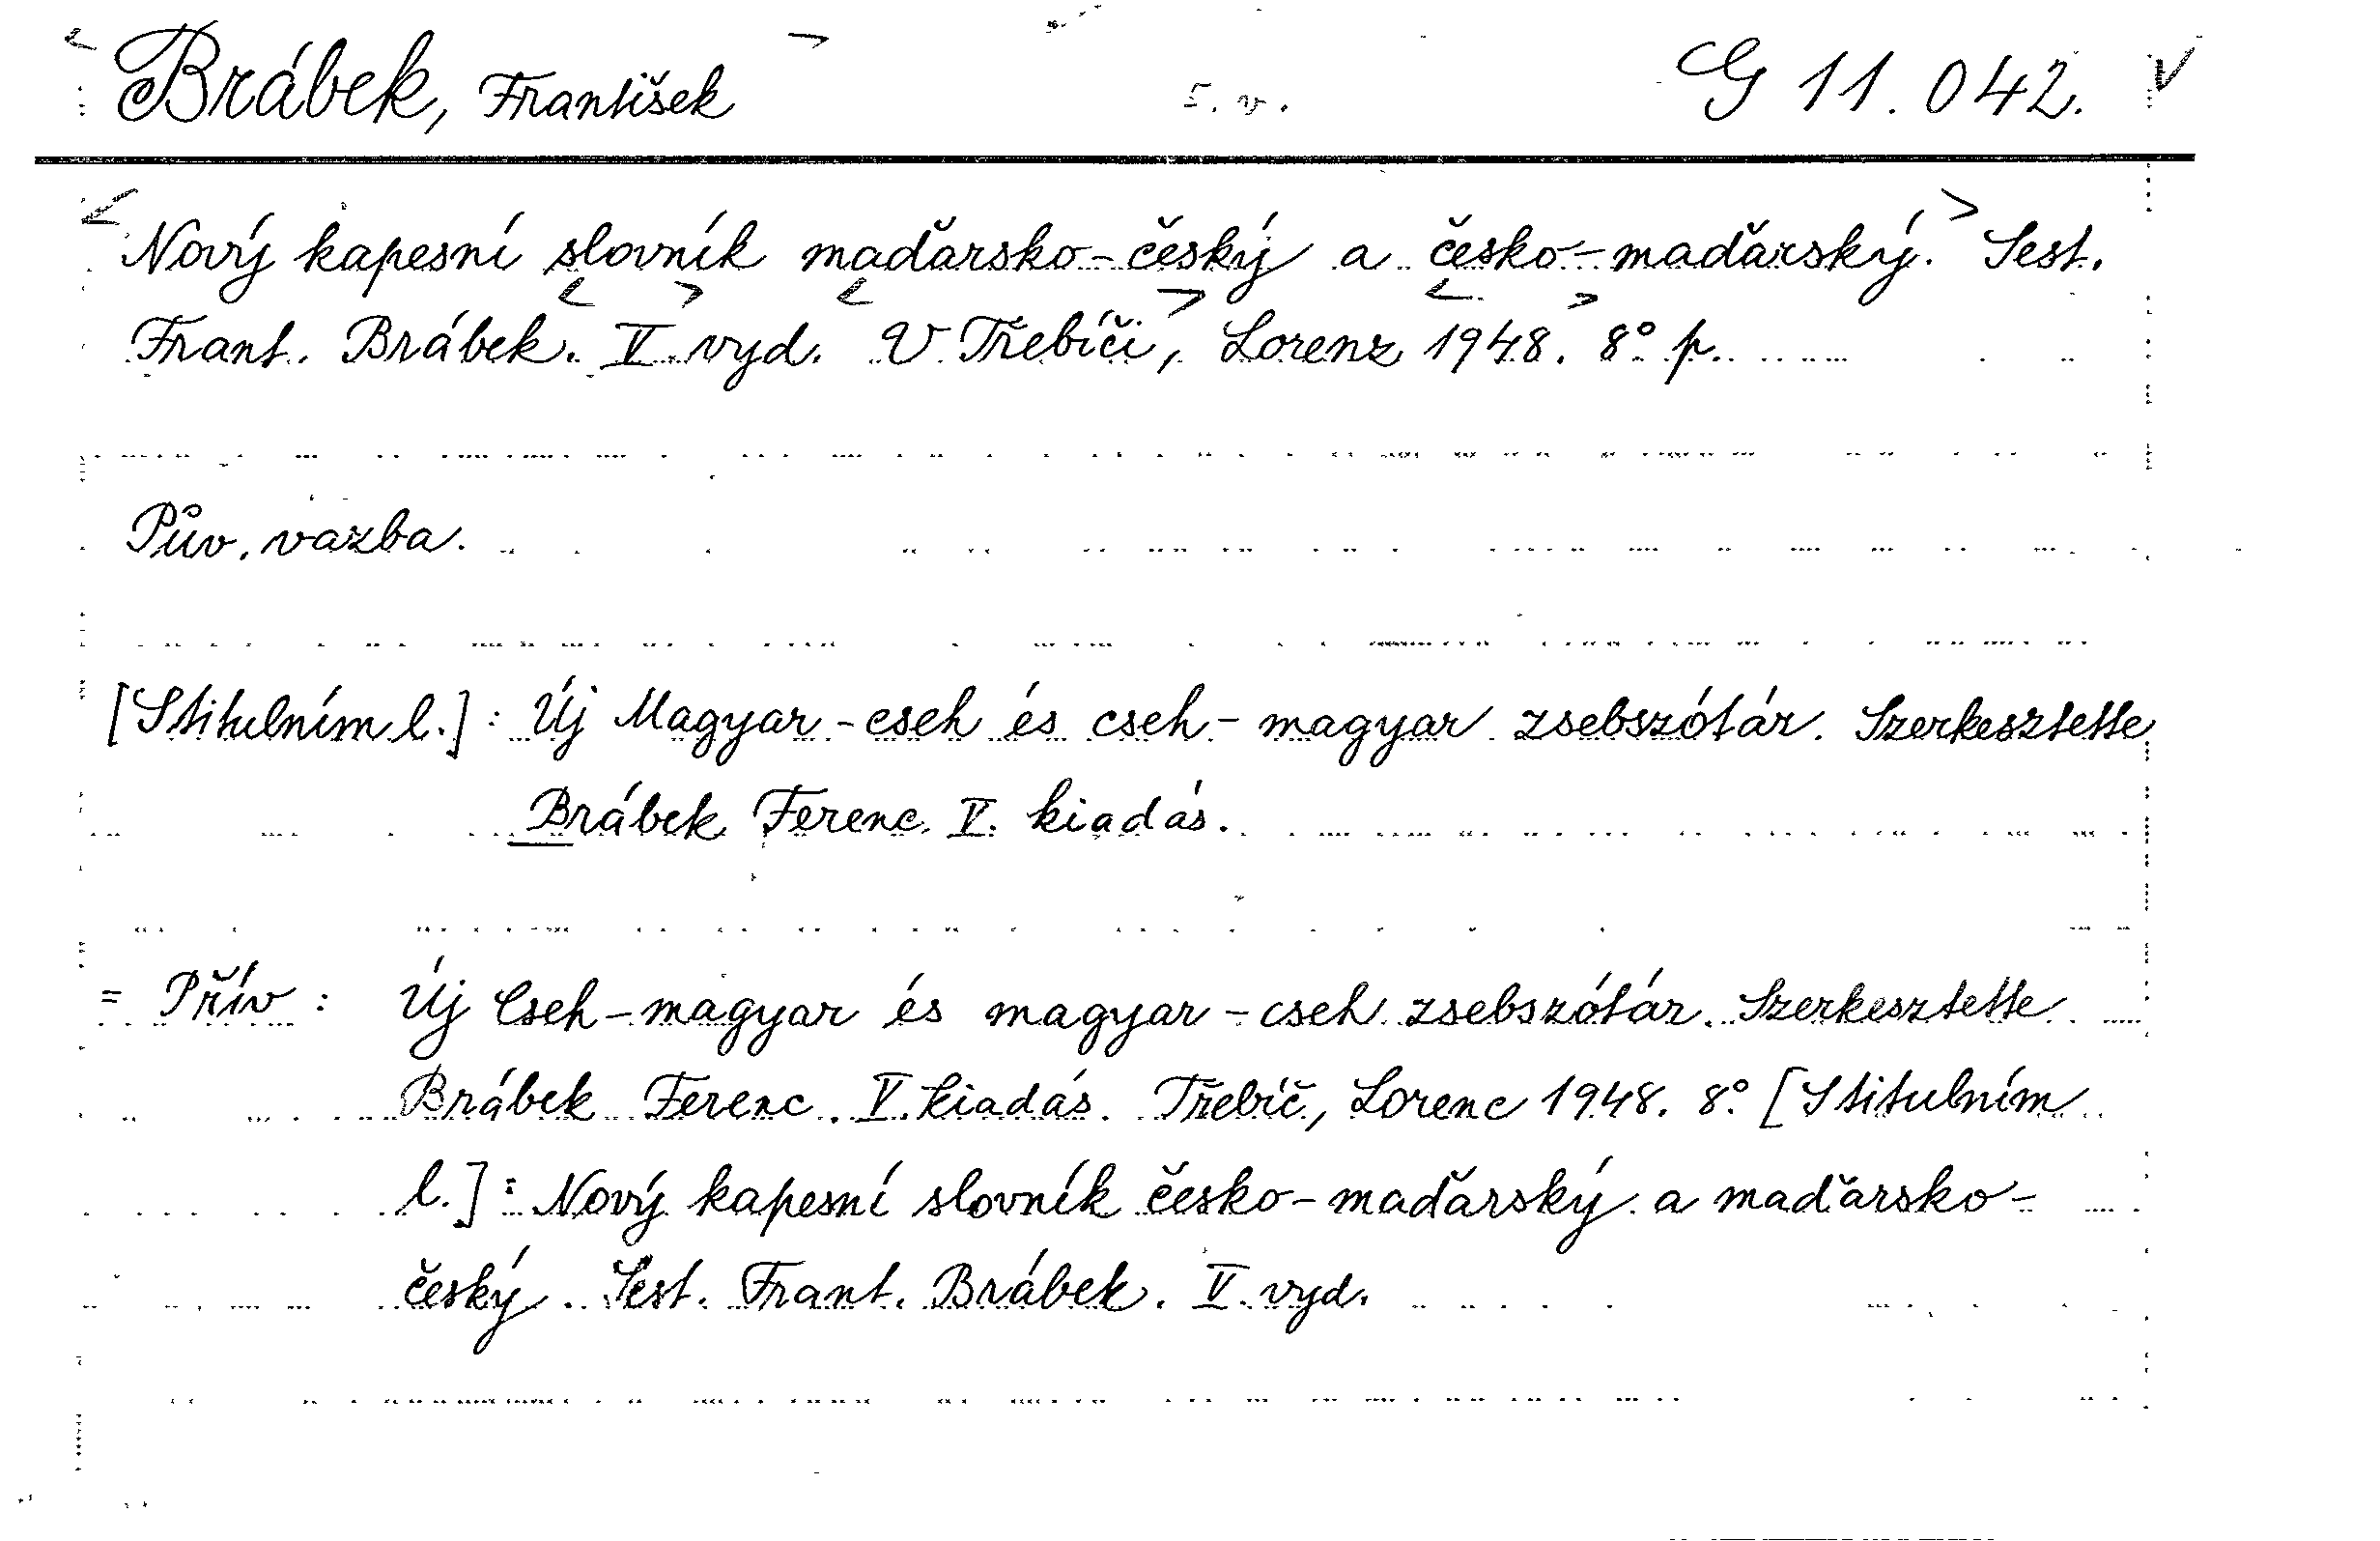 < Brábek, František > 5. v. G 11.042. V
< Nový kapesní slovník maďarsko-český a česko-maďarský. > Sest.
Frant. Brábek. < V. > vyd. < V Třebíči >, Lorenz < 1948. > 8° p.
Pův. vazba.
[Stitulním l.]: Új Magyar-cseh és cseh-magyar zsebszótár. Szerkesztette
Brábek Ferenc. V. kiadás.
= Přív: Új Cseh-magyar és magyar-cseh zsebszótár. Szerkesztette
Brábek Ferenc. V. kiadás. Třebíč, Lorenc 1948. 8° [Stitulním
l.]: Nový kapesní slovník česko-maďarský a maďarsko-
český. Sest. Frant. Brábek. V. vyd.